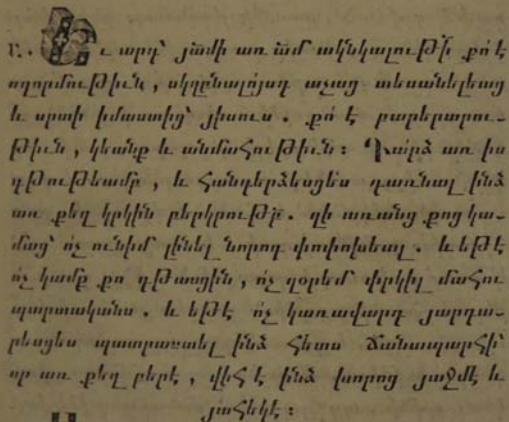 Ը. Եւ արդ՝ յա՟մի առ ա՟մ ակնկալութի՟ քո՛ է
ողորմութիւն, սկըբնալո՛յսդ աչաց տեսանելեաց
և սրտի իմաստից՝ յիսուս. քո՛ է բարերարու-
թիւն, կեանք և անմահութիւն: Դա՛րձ առ իս
գթութեամբ, և հանդերձեսցես դառնալ ինձ
առ քեզ կրկին բերկրութբ՟. զի առանց քոց կա-
մաց՝ ո՛չ ունիմ լինել նորոգ փոփոխեալ. և եթէ
ո՛չ կամք քո գթասցին, ո՛չ զօրեմ փրկիլ մահու
պարտականս. և եթէ ո՛չ կառավարդ յարդա-
րեսցես պատրաստել ինձ հետս ճանապարհի՝
որ առ քեզ բերէ, վիհ է ինձ խորոց յաջմէ և
յահեկէ: